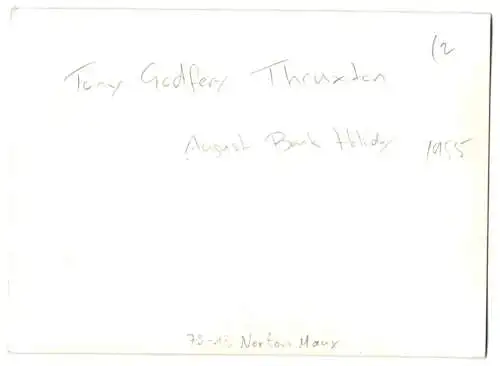 12
Tony Godfery Thruxton
August Bank Holiday 1955
Norton Manx